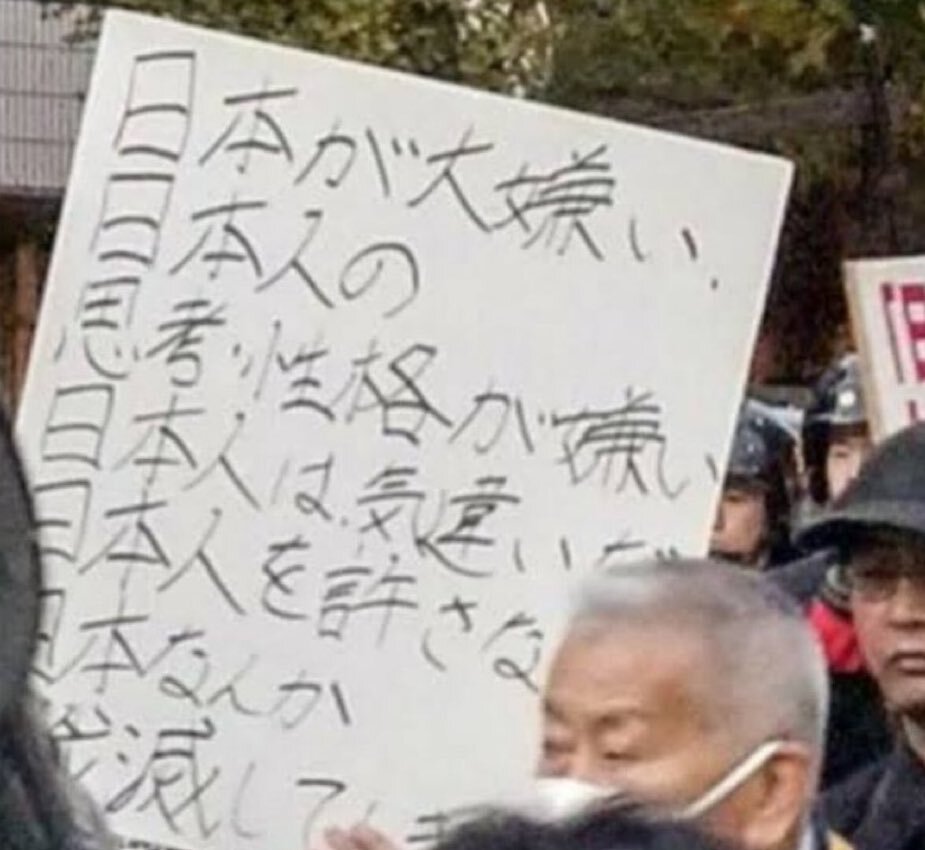 日本が大嫌い.
日本人の
思考,性格が嫌い
日本人は気違いだ
日本人を許さな
日本なんか
滅してしま